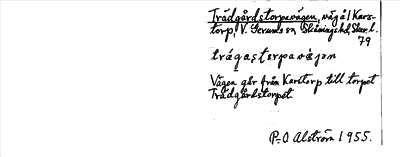 Trädgårdstorpavägen, väg å/ Kars-
torp, V. Gerums sn, Skånings hd, Skar. l.
79
trágastorpavä̀jən
Vägen går från Karstorp till torpet
Trädgårdstorpet.
P-O Alström 1955.